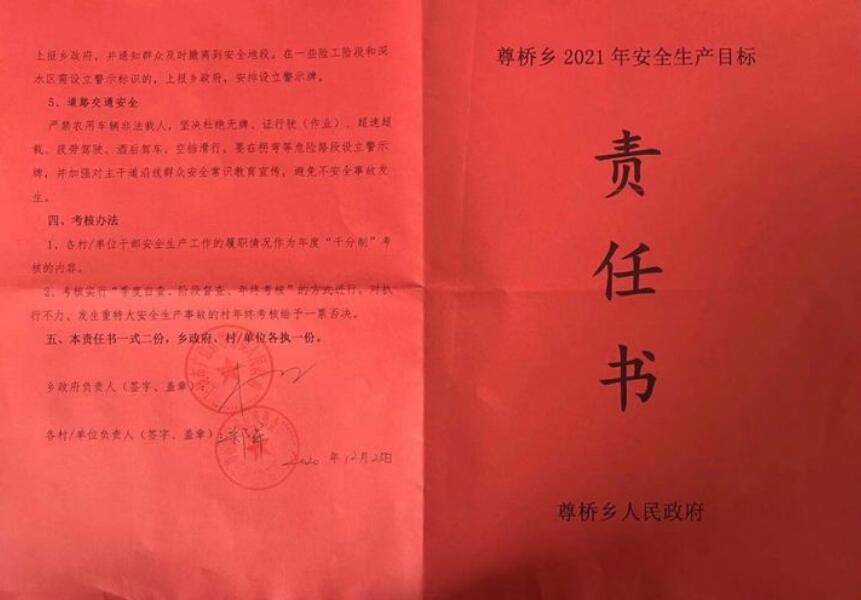 上报乡政府，并通知群众及时撤离到安全地段。在一些险工阶段和深
水区需设立警示标识的，上报乡政府，安排设立警示牌。
5、道路交通安全
严禁农用车辆非法载人，坚决杜绝无牌、证行驶（作业）、超速超
载、疲劳驾驶、酒后驾车、空档滑行。要在拐弯等危险路段设立警示
牌，并加强对主干道沿线群众安全常识教育宣传，避免不安全事故发
生。
四、考核办法
1、各村/单位干部安全生产工作的履职情况作为年度“千分制”考
核的内容。
2、考核实行“季度自查、阶段督查、年终考核”的方式进行。对执
行不力、发生重特大安全生产事故的村年终考核给予一票否决。
五、本责任书一式二份，乡政府、村/单位各执一份。
乡政府负责人（签字、盖章）：
各村/单位负责人（签字、盖章）：
2020 年 12月25日
尊桥乡 2021 年安全生产目标
责
任
书
尊桥乡人民政府